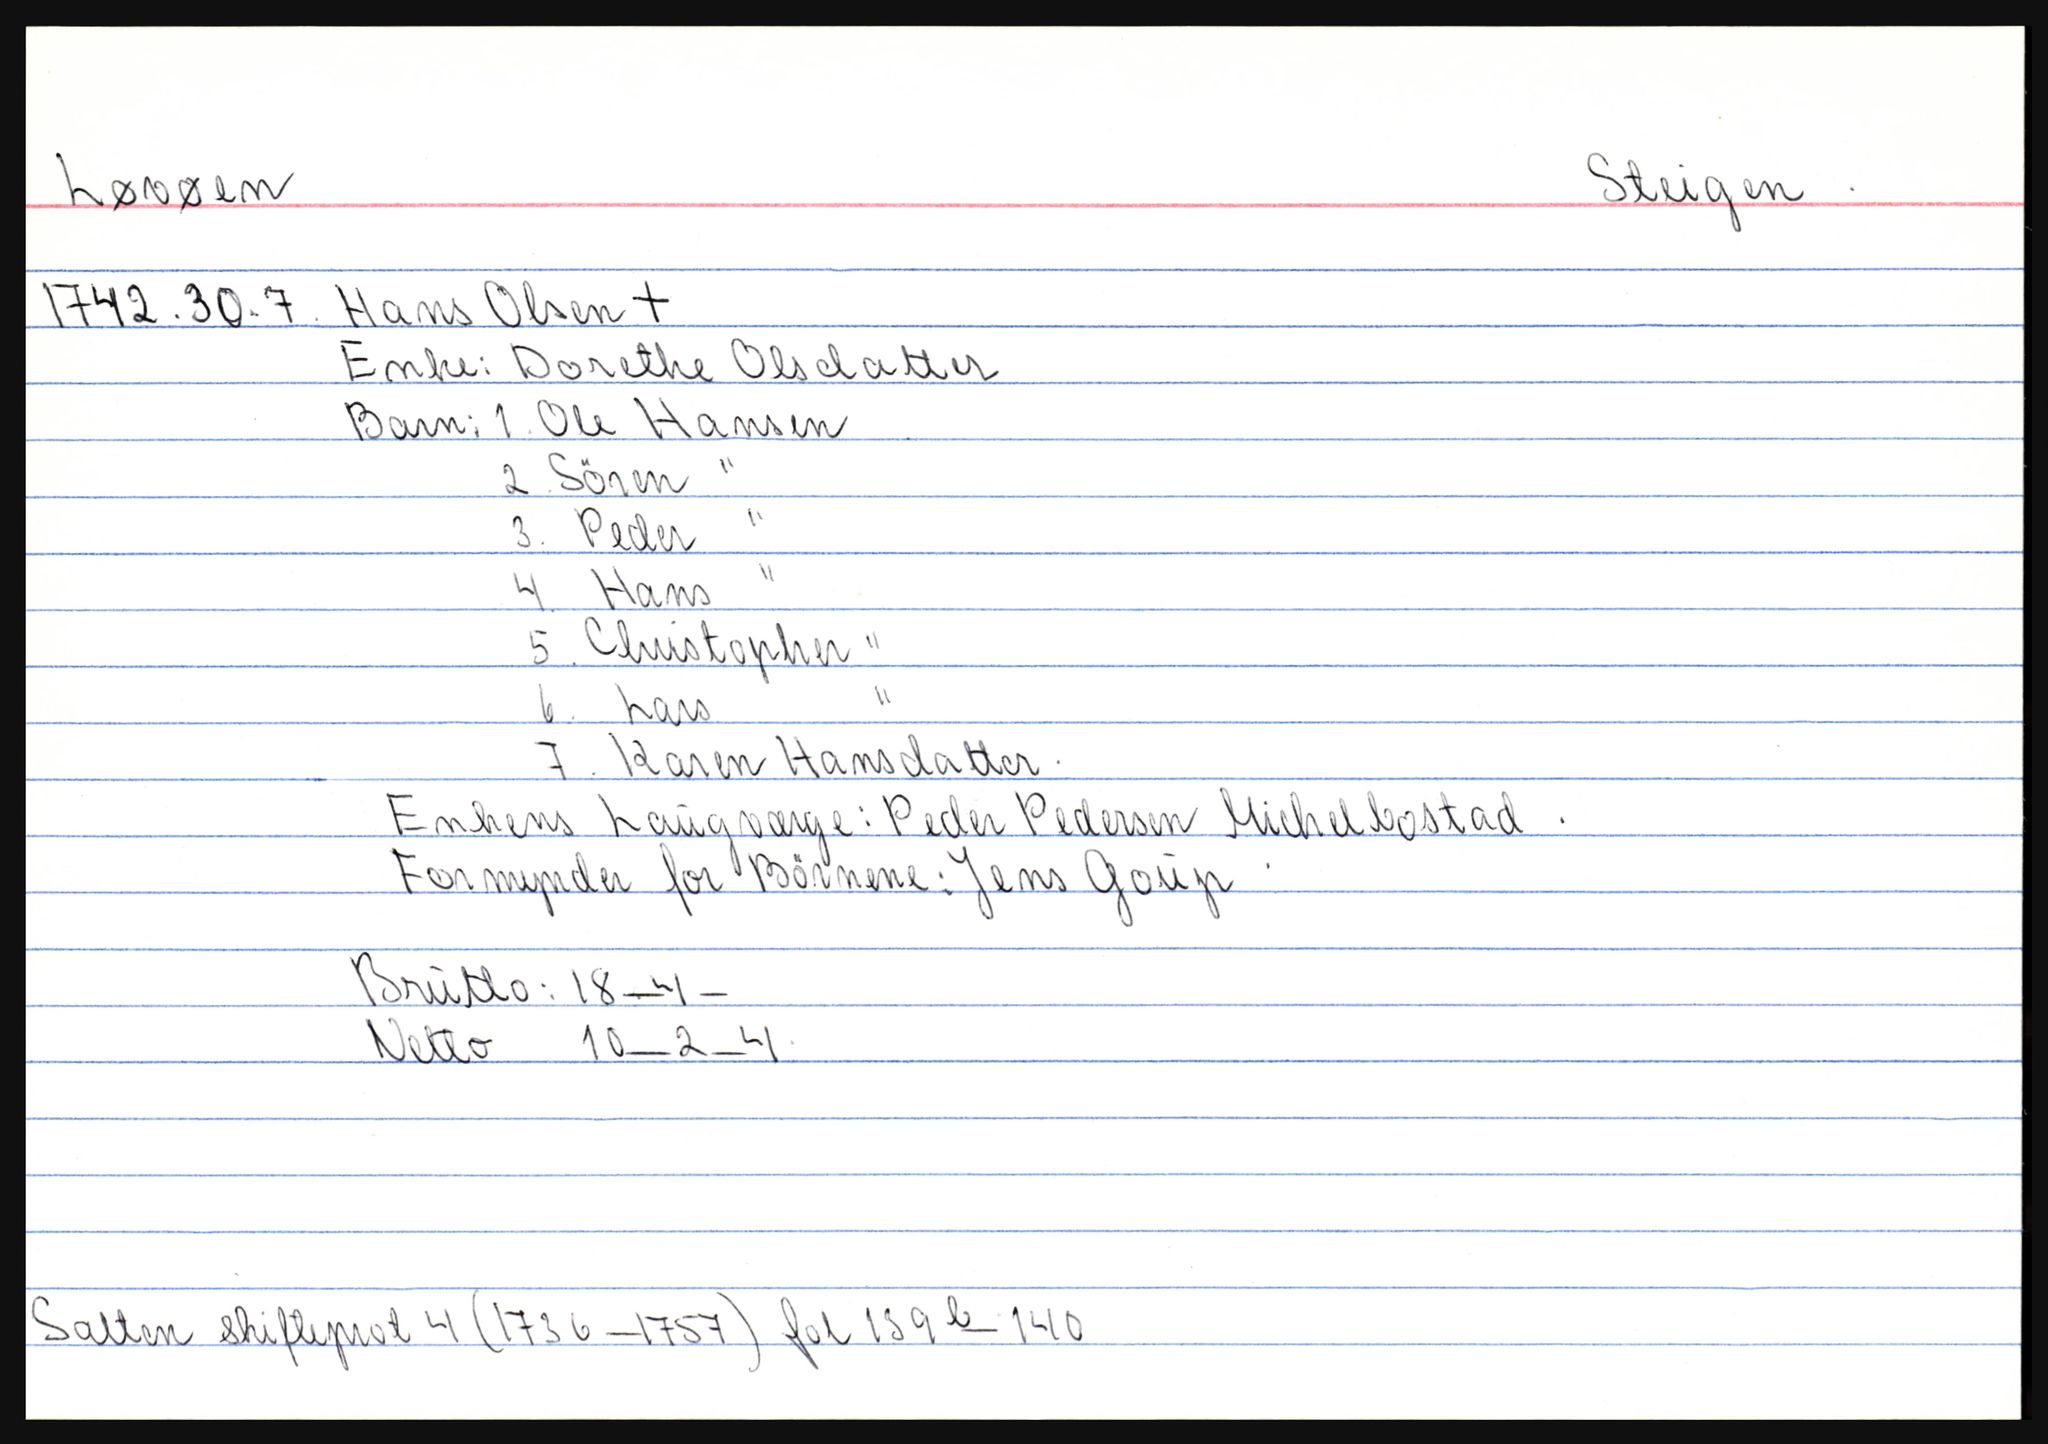 Løvøen Steigen.
1742.30.7. Hans Olsen +
Enke: Dorethe Olsdatter
Barn: 1. Ole Hansen
2. Sören "
3. Peder "
4. Hans "
5. Christopher "
6. Lars "
7. Karen Hansdatter.
Enkens Laŭgværge: Peder Pedersen Michelbostad.
Formynder for Börnene: Jens Goŭp.
Brŭtto: 18-4-
Netto 10-2-4.
Salten skifteprot 4 (1736-1757) fol 139b-140